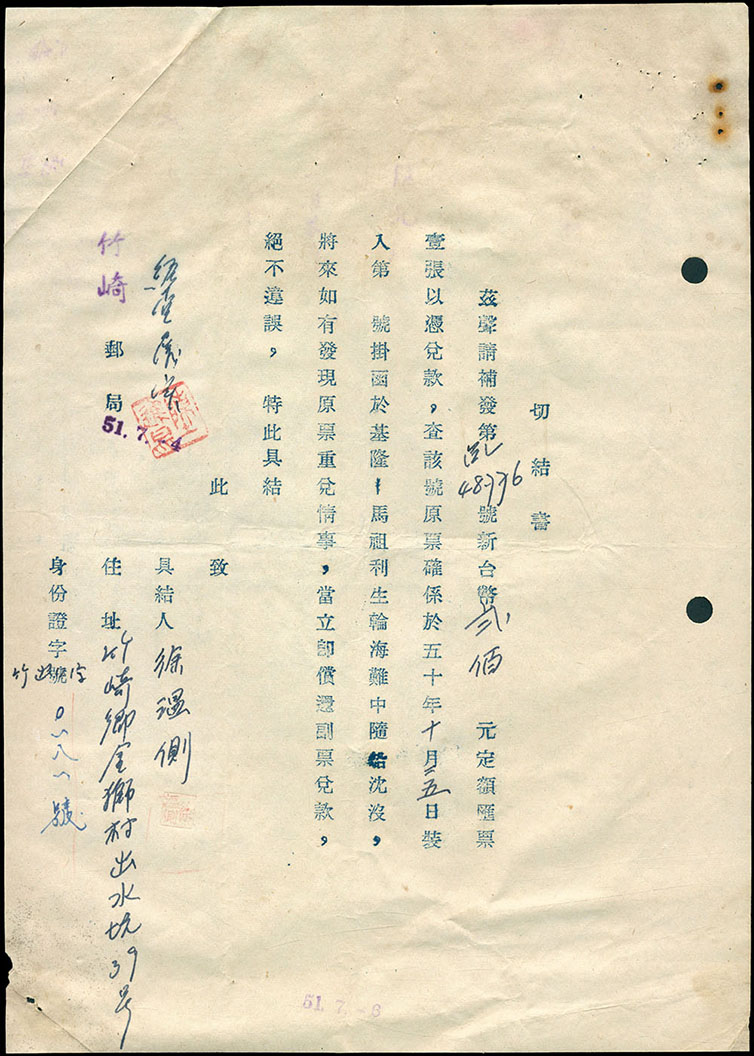 切結書
茲聲請補發第 48736 號新台幣弍佰元定額匯票
壹張以憑兌款，查該號原票確係於五十年十月二五日裝
入第　號掛函於基隆－馬祖利生輪海難中隨船沈沒，
將來如有發現原票重兌情事，當立卽償還副票兌款，
絕不違誤，特此具結
此致
具結人 徐溫側
竹崎郵局
51.7.-4
住址 竹崎鄉金獅村出水坑39号
身份證字號 竹 字 號
51.7.-6